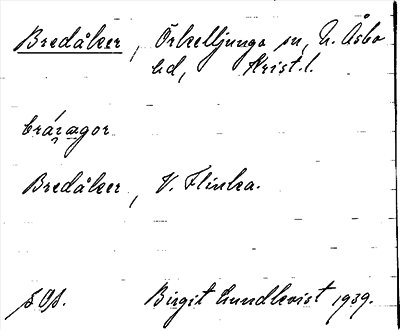 Bredåker, Örkelljunga sn, N. Åsbo
hd, Krist.l.
bráʒagor
Bredåker, V. Flinka.
s Of.
Birgit Lundkvist 1939.